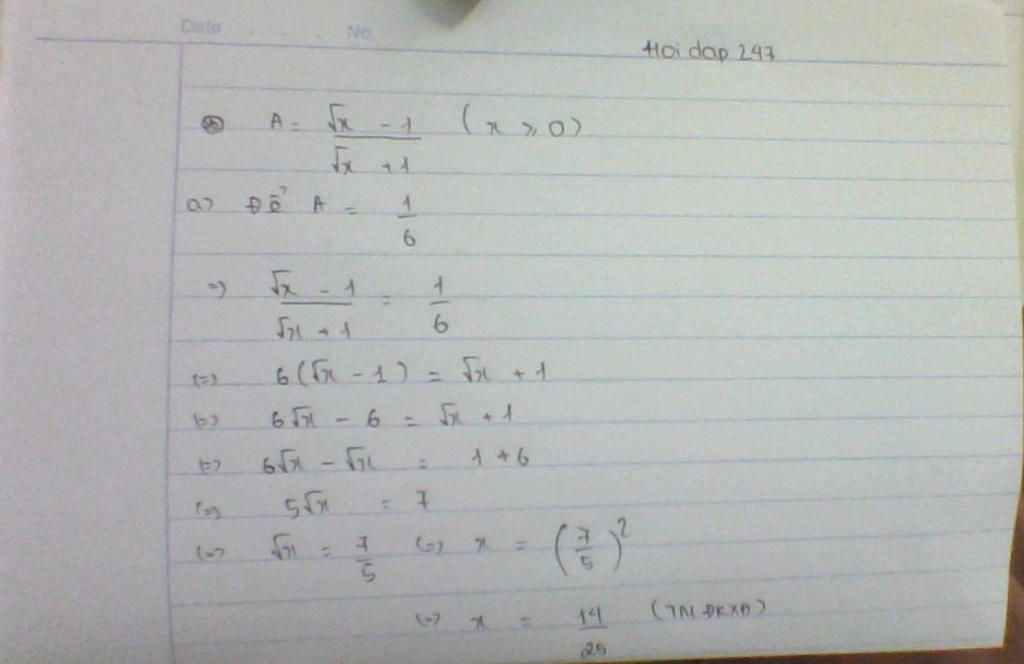 Date . . . No.
Hoi dap 247
A = \frac{√x - 1}{√x + 1} (x ⩾ 0)
a) Để A = \frac{1}{6}
=) \frac{√x - 1}{√x + 1} = \frac{1}{6}
(=) 6(√x - 1) = √x + 1
(=) 6√x - 6 = √x + 1
(=) 6√x - √x = 1 + 6
(=) 5√x = 7
(=) √x = \frac{7}{5} (=) x = (\frac{7}{5})^2
(=) x = \frac{14}{25} (TM ĐKXĐ)